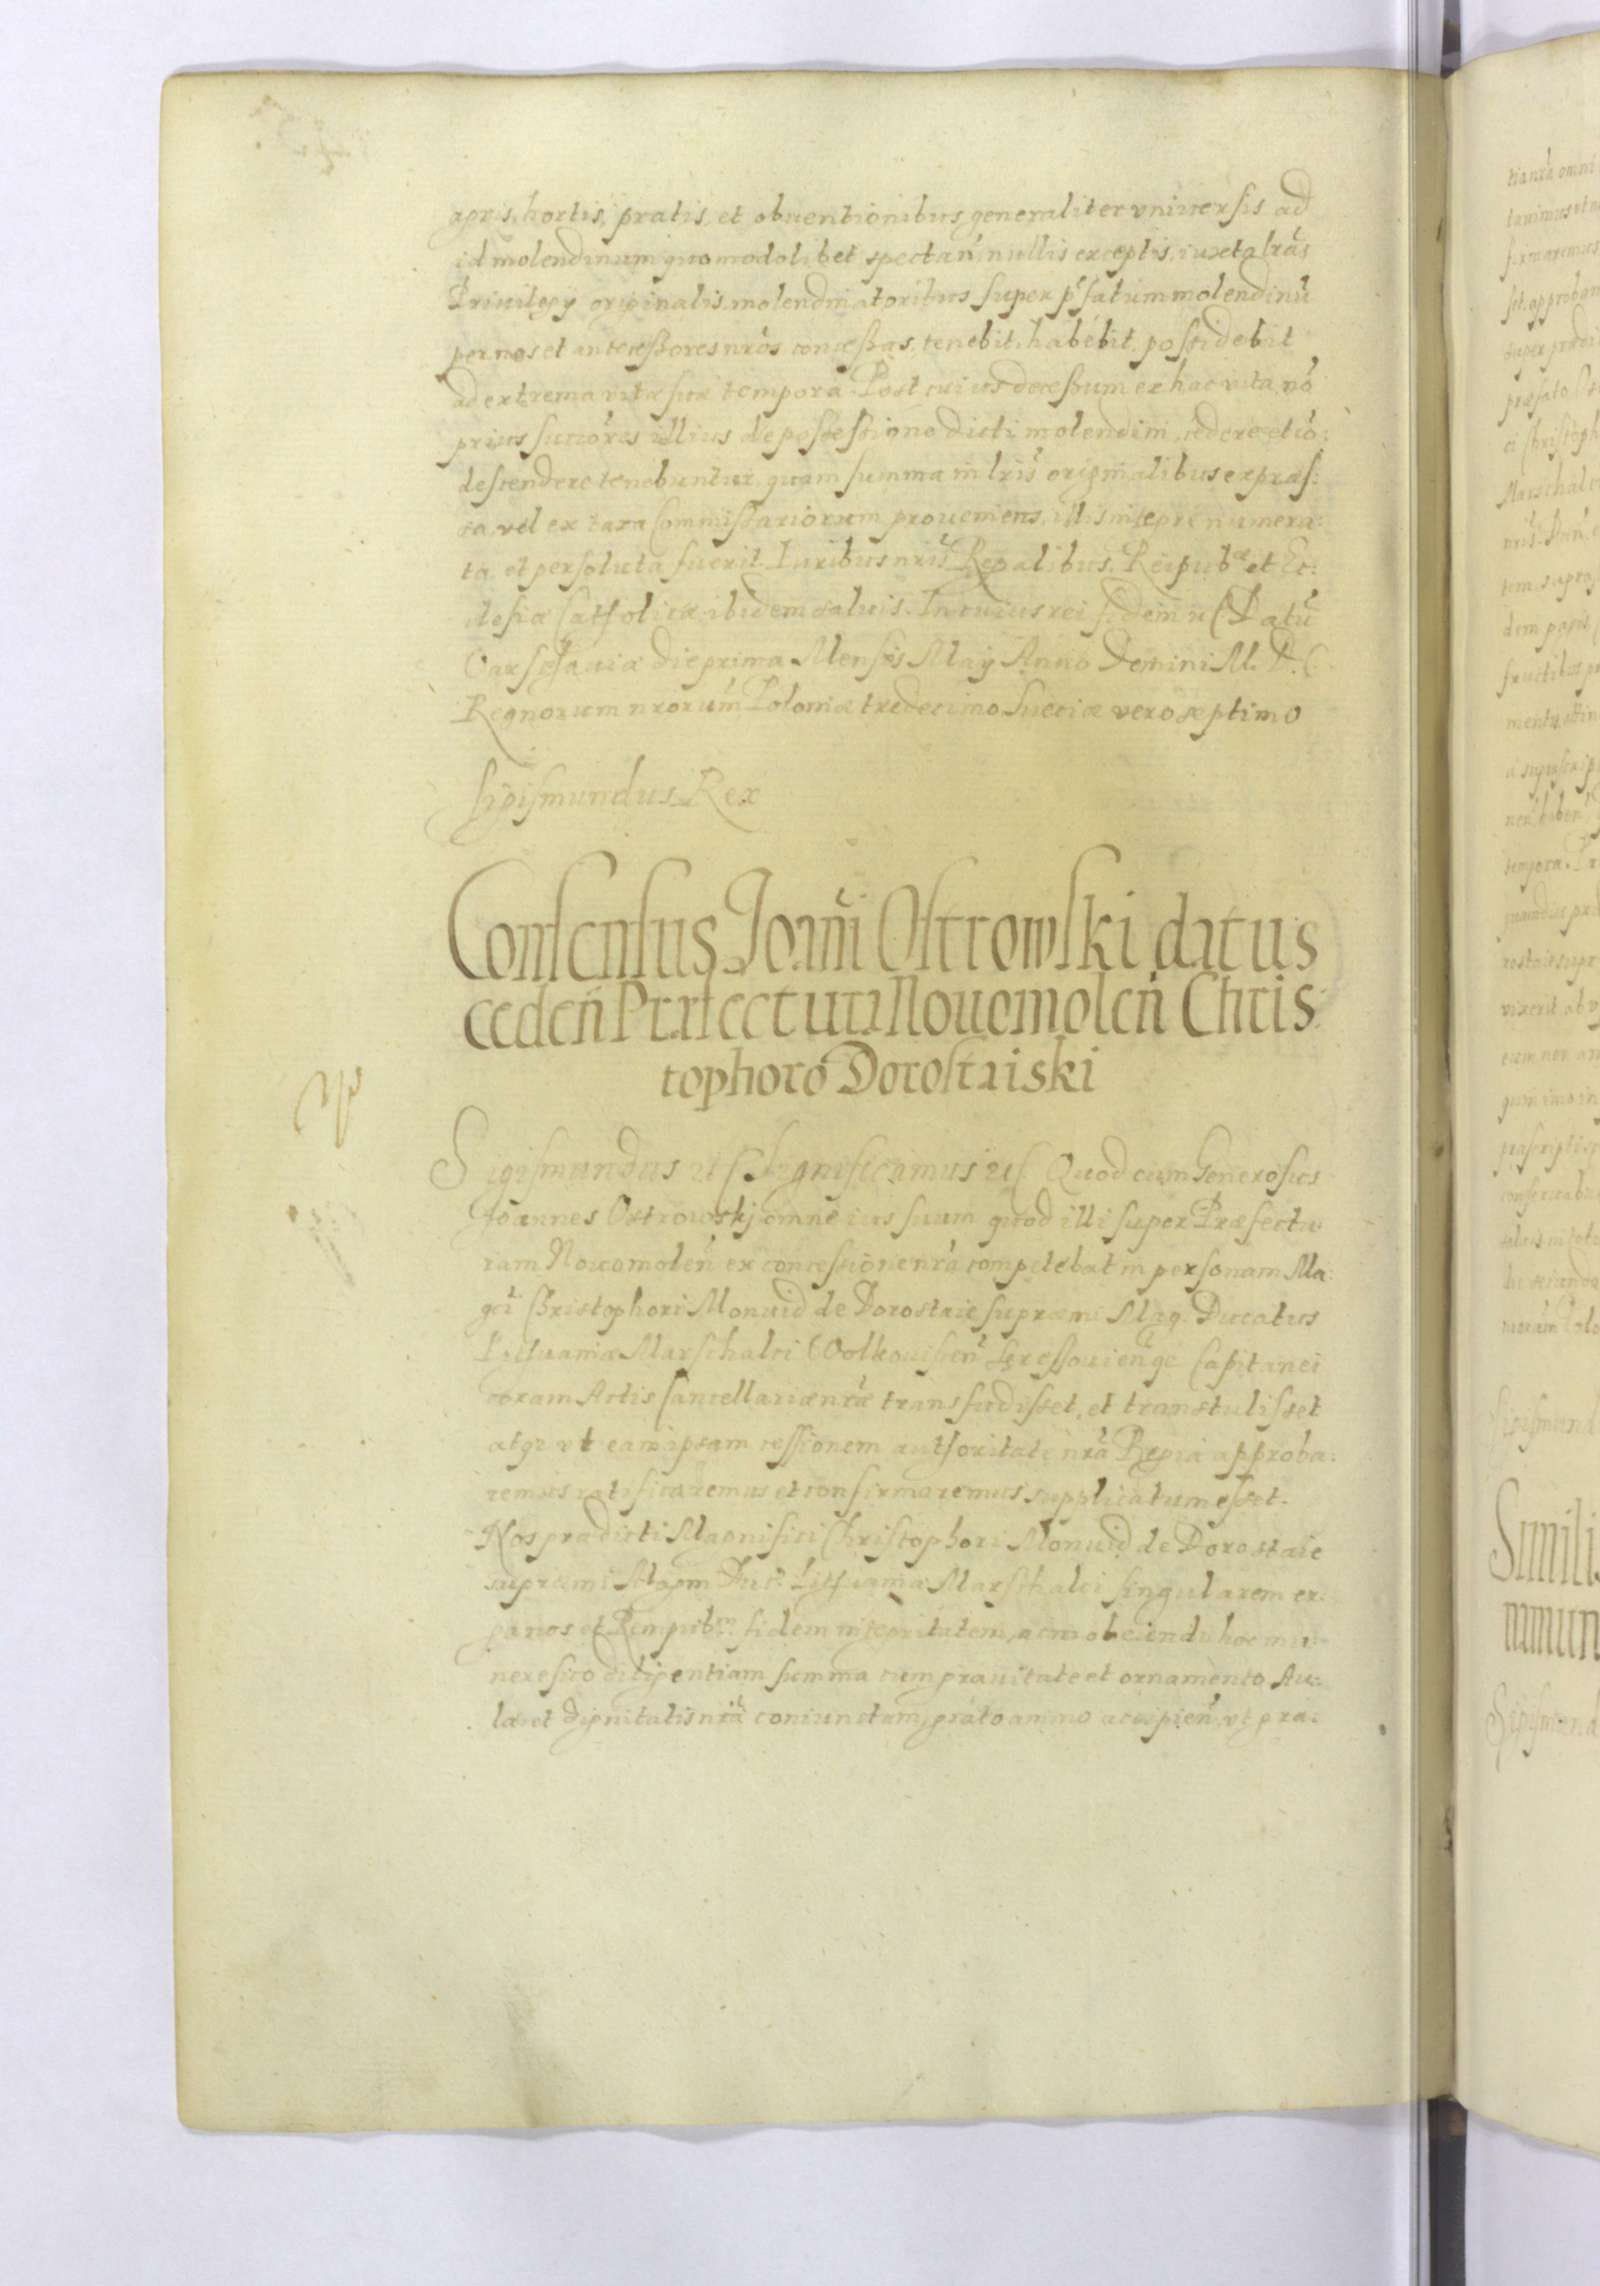 agris, hortis, pratis, et obuentionibus generaliter vniuersis ad
id molendinum quomodolibet spectan̄ nullis exceptis, iuxta lrās
Priuilegy originalis molendinatoribus super p̄fatum molendinū
per nos et antecessores nrōs concessas, tenebit, habebit, possidebit
ad extrema vitæ suæ tempora. Post cuius decessum ex hac vita, nō
prius succōres illius de possessione dicti molendini, cedere et cō:
descendere tenebuntur, quam summa in lrīs originalibus expræs:
sa, vel ex taxa Commissariorum proueniens, illis integre numera:
ta, et persoluta fuerit. Iuribus nrīs Regalibus, Reipubcæ et Ec:
clesiæ Catholicæ ibidem saluis. In cuius rei fidem ꝛc Datū
Varschauiæ die prima Mensis Maij Anno Domini M. D. C
Regnorum nrorūm Poloniæ tredecimo Sueciæ vero septimo
Sigismundus Rex
Consensus Joan̄i Ostrowski datus
ceden̄ Præfectura Nouomolen̄ Chris:
tophoro Dorostaiski
Sigismundus ꝛc Significamus ꝛc Quod cum Generosus
Joannes Ostrowskj omne ius suum quod illi super Præfectu:
ram Nouomolen̄ ex concessione nrā competebat in personam Ma:
gcī Christophori Monuid de Dorostaie supræmi Mag. Ducatus
Lithuaniæ Marschalci Wolkouiscen̄ Szeressouien̄qe Capitanei
coram Actis Cancellariæ nrǣ transfudisset, et transtulisset
atqe vt eam ipsam cessionem authoritate nrā Regia approba:
remus ratificaremus et confirmaremus, supplicatum esset.
Nos prædicti Magnifici Christophori Monuid de Dorostaie
supræmi Magni Duc: Lithuaniæ Marschalci singularem er:
ga nos et Rempubcm fidem integritatem, ac in obeiendo hoc mu:
nere suo diligentiam summa cum grauitate et ornamento Au:
læ et dignitatis nrǣ coniunctam, grato animo accipien̄, vt gra: